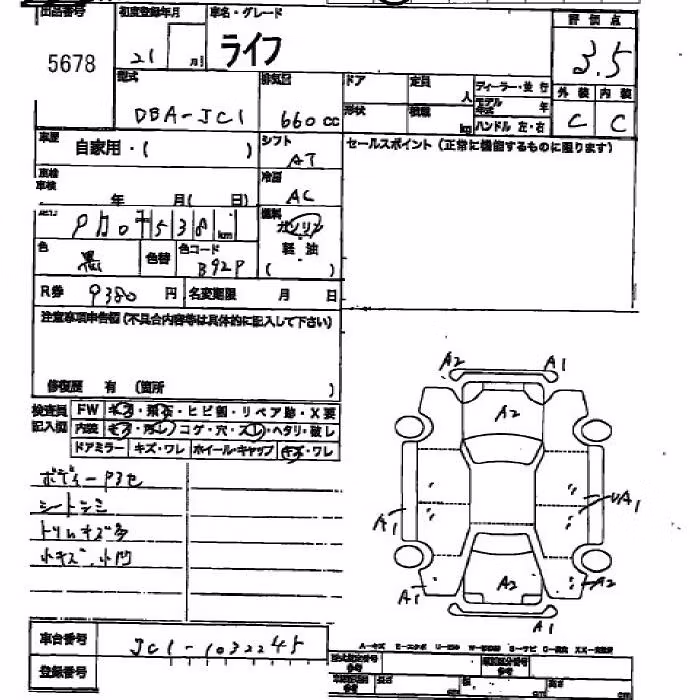 出品番号 初度登録年月 車名・グレード 評価点
5678 21 月 ライフ 3.5
型式 排気量 ドア 定員 人 ディーラー・並行 外装 内装
DBA-JC1 660cc 形状 積載 kg モデル年式 年 C C
ハンドル 左・右
車歴 自家用・( ) シフト AT セールスポイント(正常に機能するものに限ります)
車検 年 月( 日) 冷房 AC
538 km 燃料 ガソリン
色 黒 色替 色コード B92P 軽油 ( )
R券 9380 円 名変期限 月 日
注意事項申告欄(不具合内容等は具体的に記入して下さい)
修復歴 有 (箇所 )
検査員 FW キズ・飛石・ヒビ割・リペア跡・X要
記入欄 内装 キズ・汚レ・コゲ・穴・スレ・ヘタリ・破レ
ドアミラー キズ・ワレ ホイール・キャップ キズ・ワレ
シートシミ
トリムキズ多
小キズ、小凹
A2 A1
A2
A1 A1
A2 A2
A1 A1
車台番号 JC1-1032245
登録番号
長さ cm 幅 cm 高さ cm